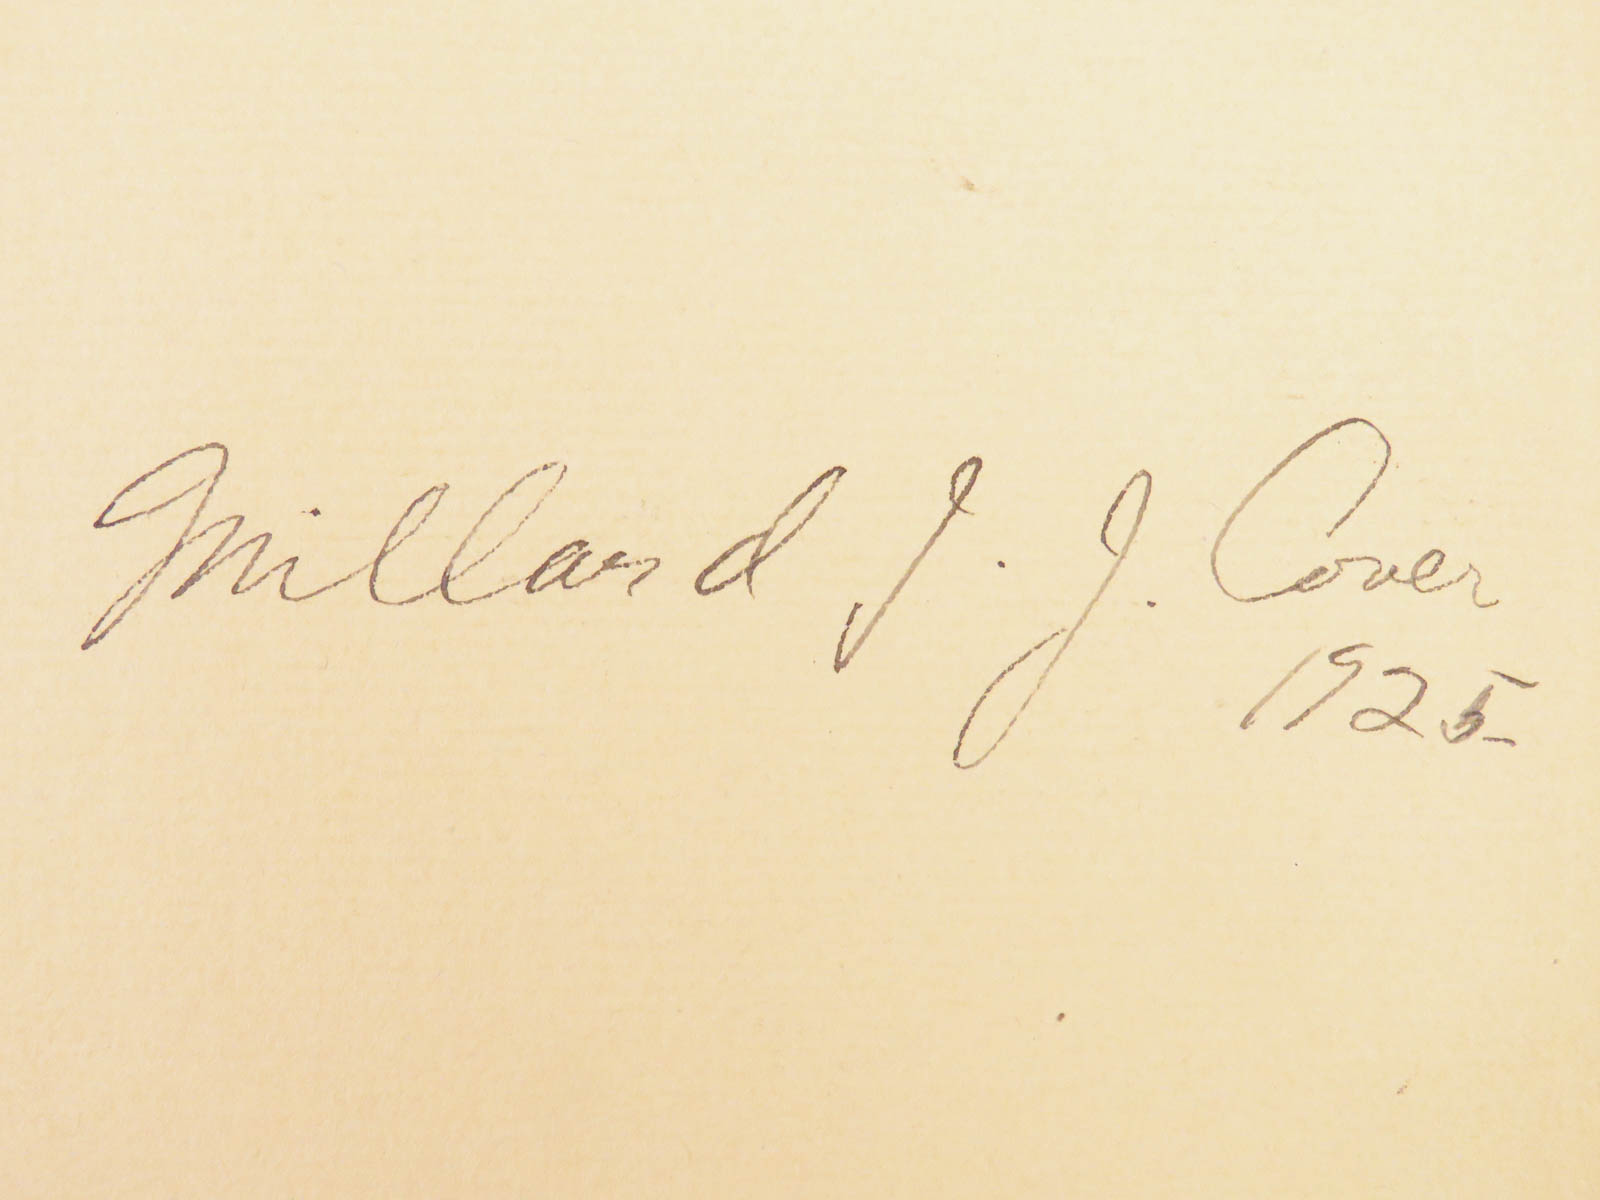 Millard J. J. Cover
1925